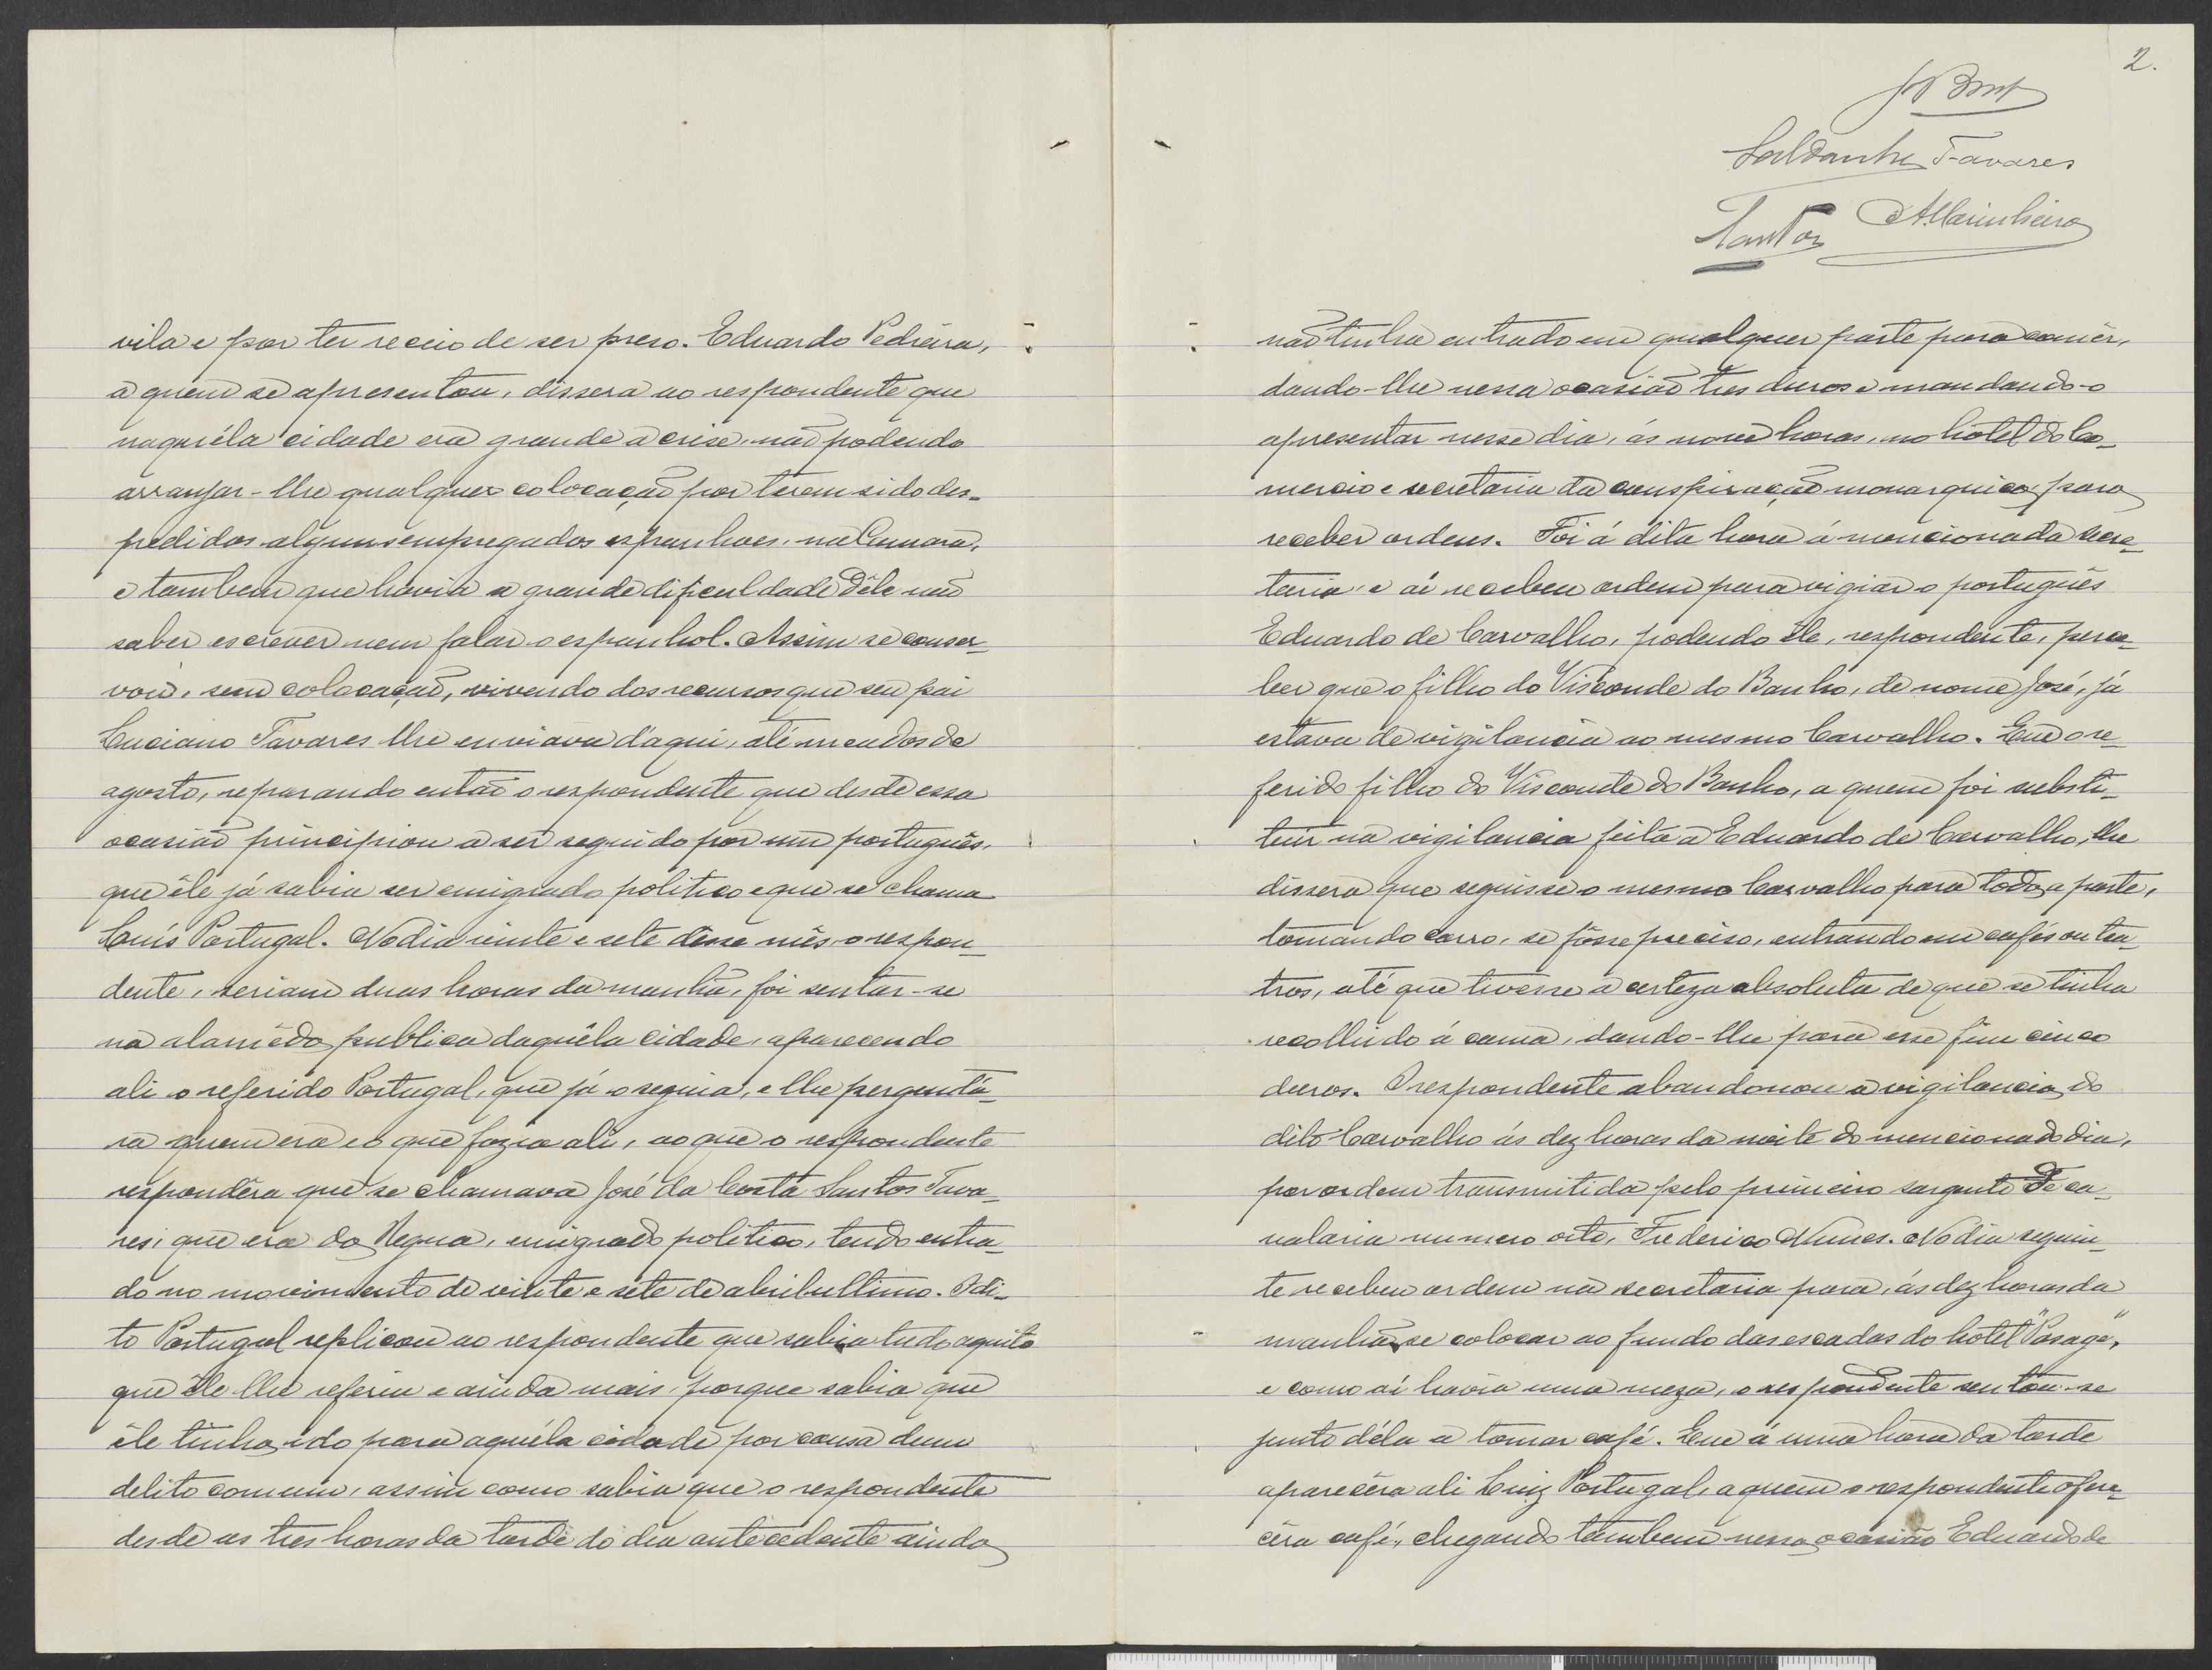 vila e por ter receio de ser preso. Eduardo Pedreira,
a quem se apresentou, dissera ao respondente que
naquéla cidade era grande a crise, não podendo
arranjar-lhe qualquer colocação por terem sido des-
pedidos alguns empregados espanhoes, na Camara,
e tambem que havia a grande dificuldade dêle não
saber escrever nem falar o espanhol. Assim se conser-
vou, sem colocação, vivendo dos recursos que seu pai
Luciano Tavares lhe enviava d'aqui, até meados de
agosto, reparando então o respondente que desde essa
ocasião principiou a ser seguido por um português,
que êle já sabia ser emigrado politico e que se chama
Luís Portugal. No dia vinte e sete dêsse mês o respon-
dente, seriam duas horas da manhã, foi sentar-se
na alamêda publica daquéla cidade, aparecendo
ali o referido Portugal, que já o seguia, e lhe perguntá-
ra quem era e o que fazia ali, ao que o respondente
respondêra que se chamava José da Costa Santos Tava-
res, que era da Regua, emigrado politico, tendo entra-
do no movimento de vinte e sete de abril ultimo. O di-
to Portugal replicou ao respondente que sabia tudo aquilo
que êle lhe referiu e ainda mais, porque sabia que
êle tinha ido para aquéla cidade por causa dum
delito comum, assim como sabia que o respondente
desde as tres horas da tarde do dia antecedente ainda
2.
Saldanha Tavares
A. Marinheiro
Santos
não tinha entrado em qualquer parte para comêr,
dando-lhe nessa ocasião tres duros e mandando-o
apresentar nesse dia, ás nove horas, no hotel do Co-
mercio e secretaria da conspiração monarquica, para
receber ordens. Foi á dita hora á mencionada secre-
taria e aí recebeu ordem para vigiar o português
Eduardo de Carvalho, podendo êle, respondente, perce-
ber que o filho do Visconde do Banho, de nome José, já
estava de vigilancia ao mesmo Carvalho. Que o re-
ferido filho do Visconde do Banho, a quem foi substi-
tuir na vigilancia feita a Eduardo de Carvalho, lhe
dissera que seguisse o mesmo Carvalho para toda a parte,
tomando carro, se fôsse preciso, entrando em cafés ou tea-
tros, até que tivesse a certeza absoluta de que se tinha
recolhido á cama, dando-lhe para esse fim cinco
duros. O respondente abandonou a vigilancia do
dito Carvalho ás dez horas da noite do mencionado dia,
por ordem transmitida pelo primeiro sargento de ca-
valaria numero oito, Frederico Nunes. No dia seguin-
te recebeu ordem na secretaria para, ás dez horas da
manhã, se colocar ao fundo das escadas do hotel "Pasage",
e como aí havia uma meza, o respondente sentou-se
junto déla a tomar café. Que á uma hora da tarde
aparecêra ali Luiz Portugal, a quem o respondente ofere-
cêra café, chegando tambem nessa ocasião Eduardo de